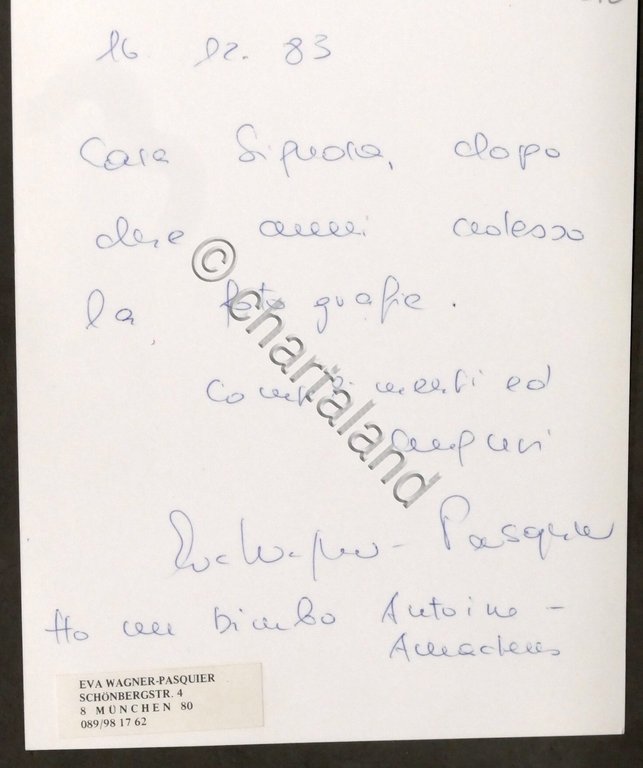 16. 12. 83
Cara Signora, dopo
due anni adesso
la fotografie.
complimenti ed
auguri
Eva Wagner-Pasquier
Ho un Bimbo Antoine-
Amadeus
EVA WAGNER-PASQUIER
SCHÖNBERGSTR. 4
8 MÜNCHEN 80
089/98 17 62
© chartaland